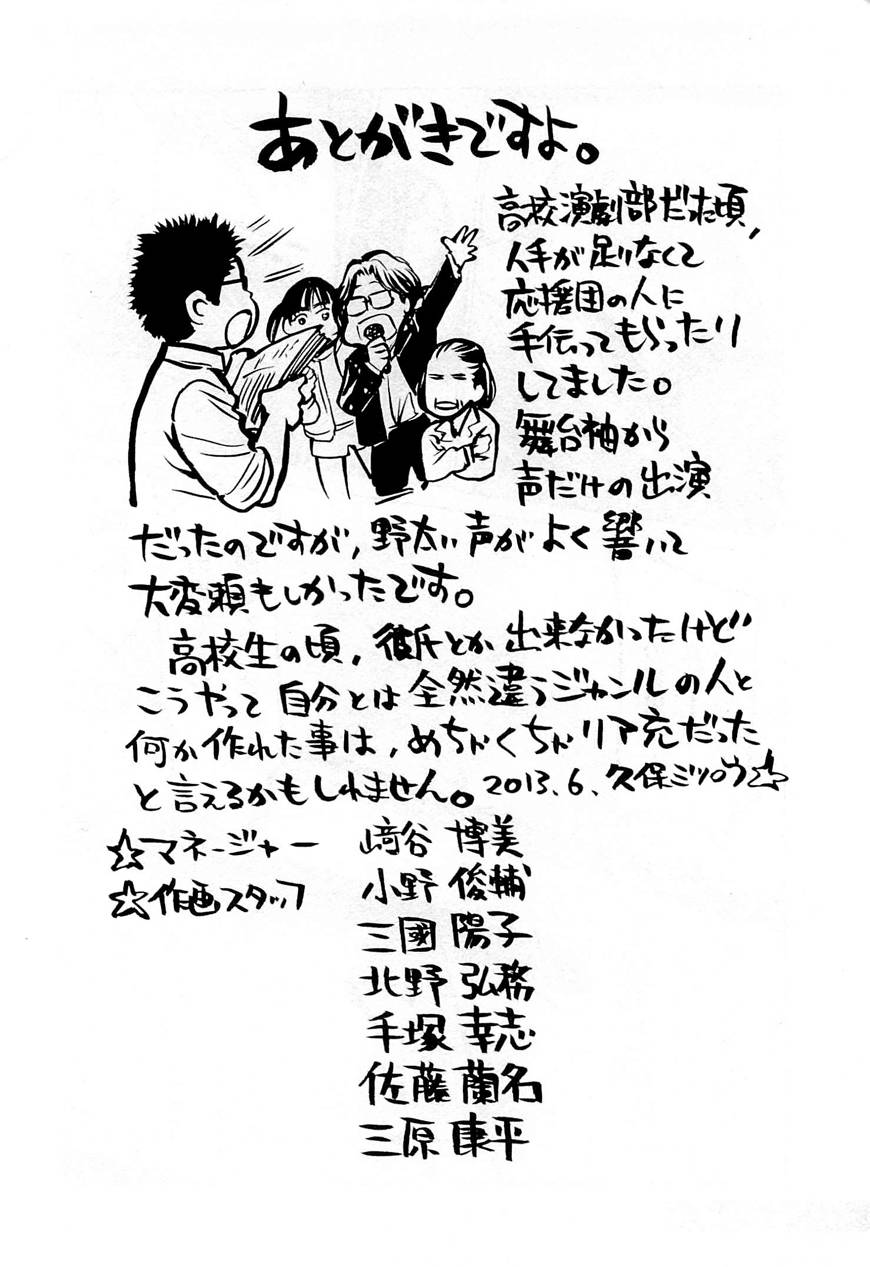 あとがきですよ。
高校演劇部だった頃,
人手が足りなくて
応援団の人に
手伝ってもらったり
してました。
舞台袖から
声だけの出演
だったのですが, 野太い声がよく響いて
大変頼もしかったです。
高校生の頃, 彼氏とか出来なかったけど
こうやって自分とは全然違うジャンルの人と
何か作れた事は, めちゃくちゃリア充だった
と言えるかもしれません。2013.6.久保ミツロウ☆
☆マネージャー 﨑谷 博美
☆作画スタッフ 小野 俊輔
三國 陽子
北野 弘務
手塚 幸志
佐藤 蘭名
三原 康平